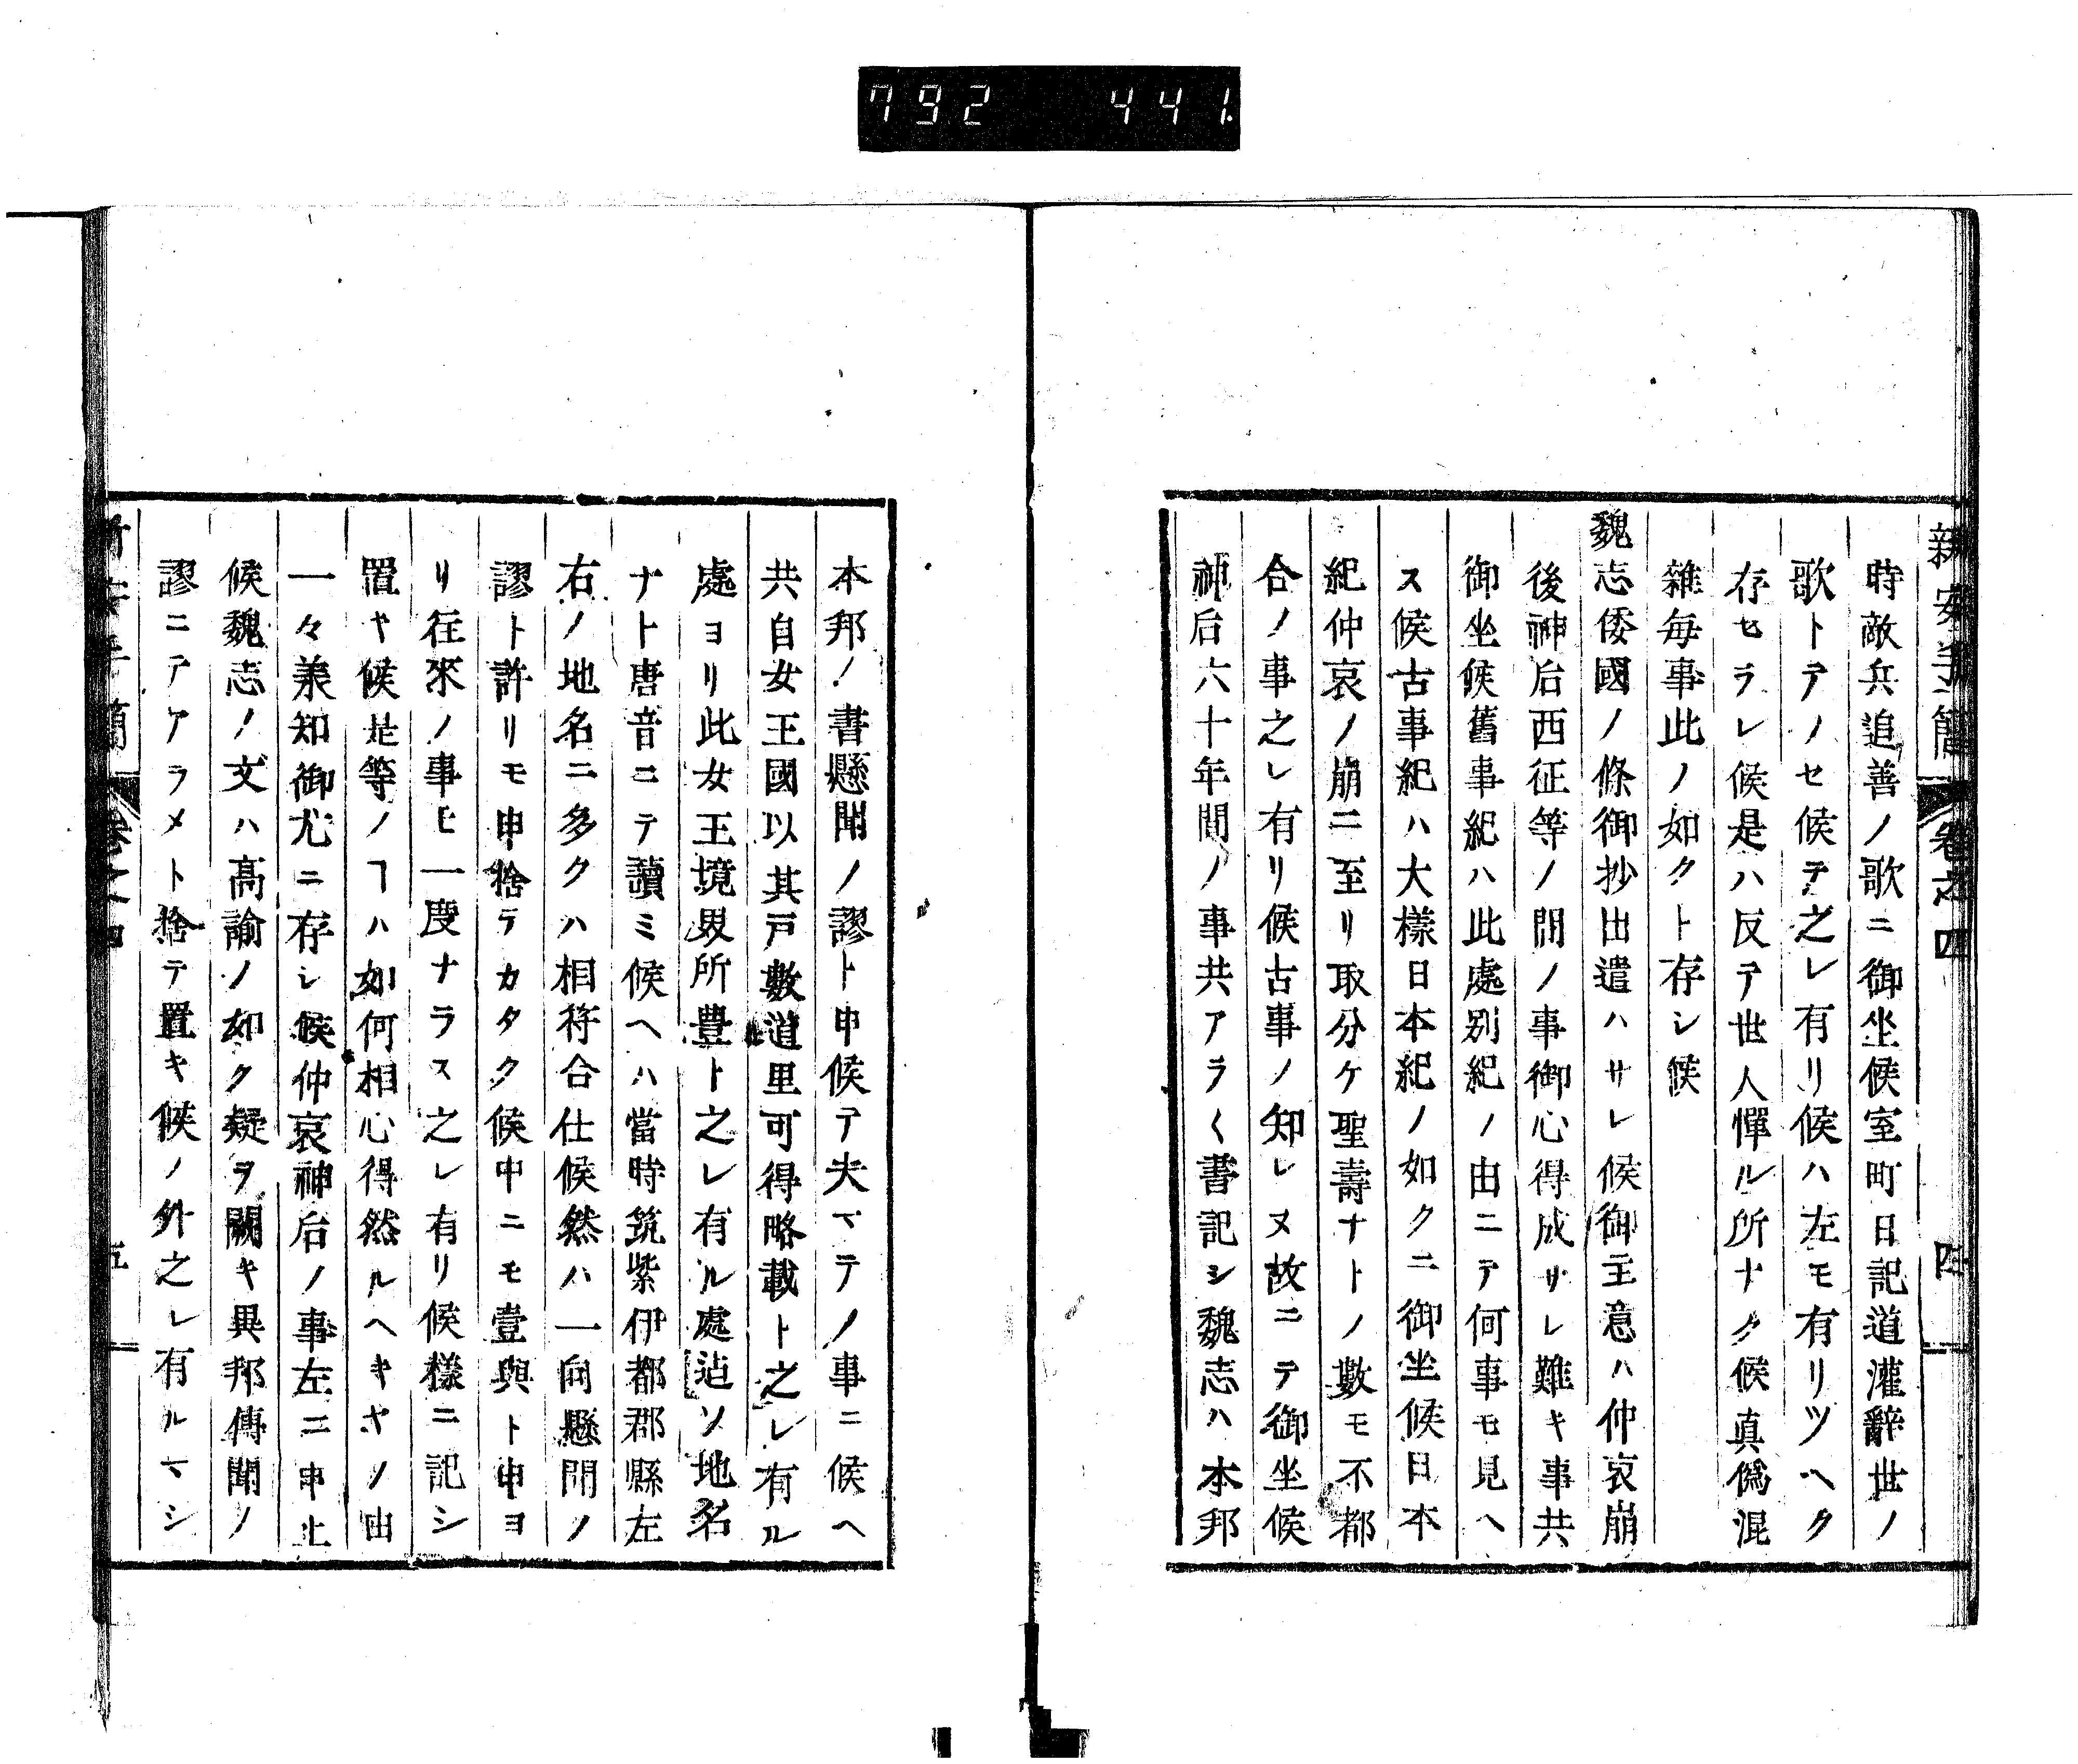 792 441
新安手簡 卷之四 四
時敵兵追善ノ歌ニ御坐候室町日記道灌辭世ノ
歌トテノセ候テ之レ有リ候ハ左モ有リツヘク
存セラレ候是ハ反テ世人憚ル所ナク候真僞混
雜毎事此ノ如クト存シ候
魏志倭國ノ條御抄出遣ハサレ候御主意ハ仲哀崩
後神后西征等ノ間ノ事御心得成サレ難キ事共
御坐候舊事紀ハ此處別紀ノ由ニテ何事モ見ヘ
ス候古事紀ハ大樣日本紀ノ如クニ御坐候日本
紀仲哀ノ崩ニ至リ取分ケ聖壽ナトノ數モ不都
合ノ事之レ有リ候古事ノ知レヌ故ニテ御坐候
神后六十年間ノ事共アラ〱書記シ魏志ハ本邦
本邦ノ書懸聞ノ謬ト申候テ夫マテノ事ニ候ヘ
共自女王國以其戸數道里可得略載ト之レ有ル
處ヨリ此女王境界所豊ト之レ有ル處迠ソ地名
ナト唐音ニテ讀ミ候ヘハ當時筑紫伊都郡縣左
右ノ地名ニ多クハ相符合仕候然ハ一向懸聞ノ
謬ト許リモ申捨テカタク候中ニモ壹與ト申ヨ
リ往來ノ事ヒ一度ナラス之レ有リ候樣ニ記シ
置ヤ候是等ノヿハ如何相心得然ルヘキヤノ由
一々兼知御尤ニ存シ候仲哀神后ノ事左ニ申上
候魏志ノ文ハ高諭ノ如ク疑ヲ闕キ異邦傳聞ノ
謬ニテアラメト捨テ置キ候ノ外之レ有ルマシ
新安手簡 卷之四 五